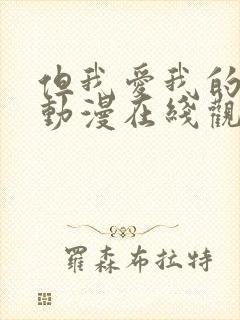 但我愛我的
動漫在綫觀
羅森布拉特